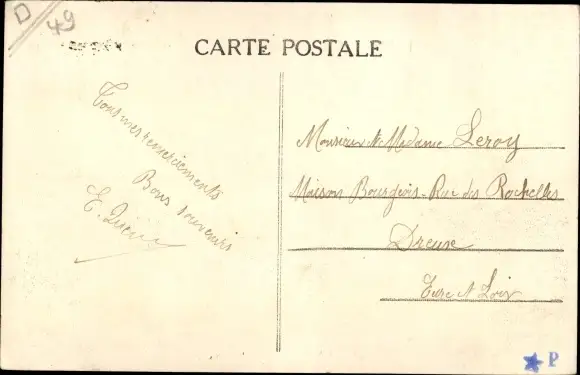 D 49
CARTE POSTALE
Tous mes remerciements
Bons souvenirs
E.
Monsieur et Madame Leroy
Maison Bourgeois - Rue des Rochelles
Dreux
Eure et Loir
P